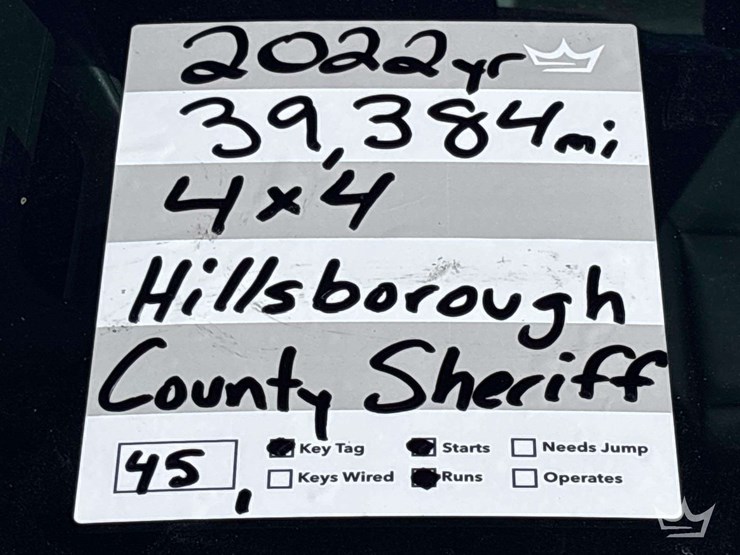 2022yr
39,384mi
4x4
Hillsborough
County Sheriff
45, Key Tag Starts Needs Jump
Keys Wired Runs Operates